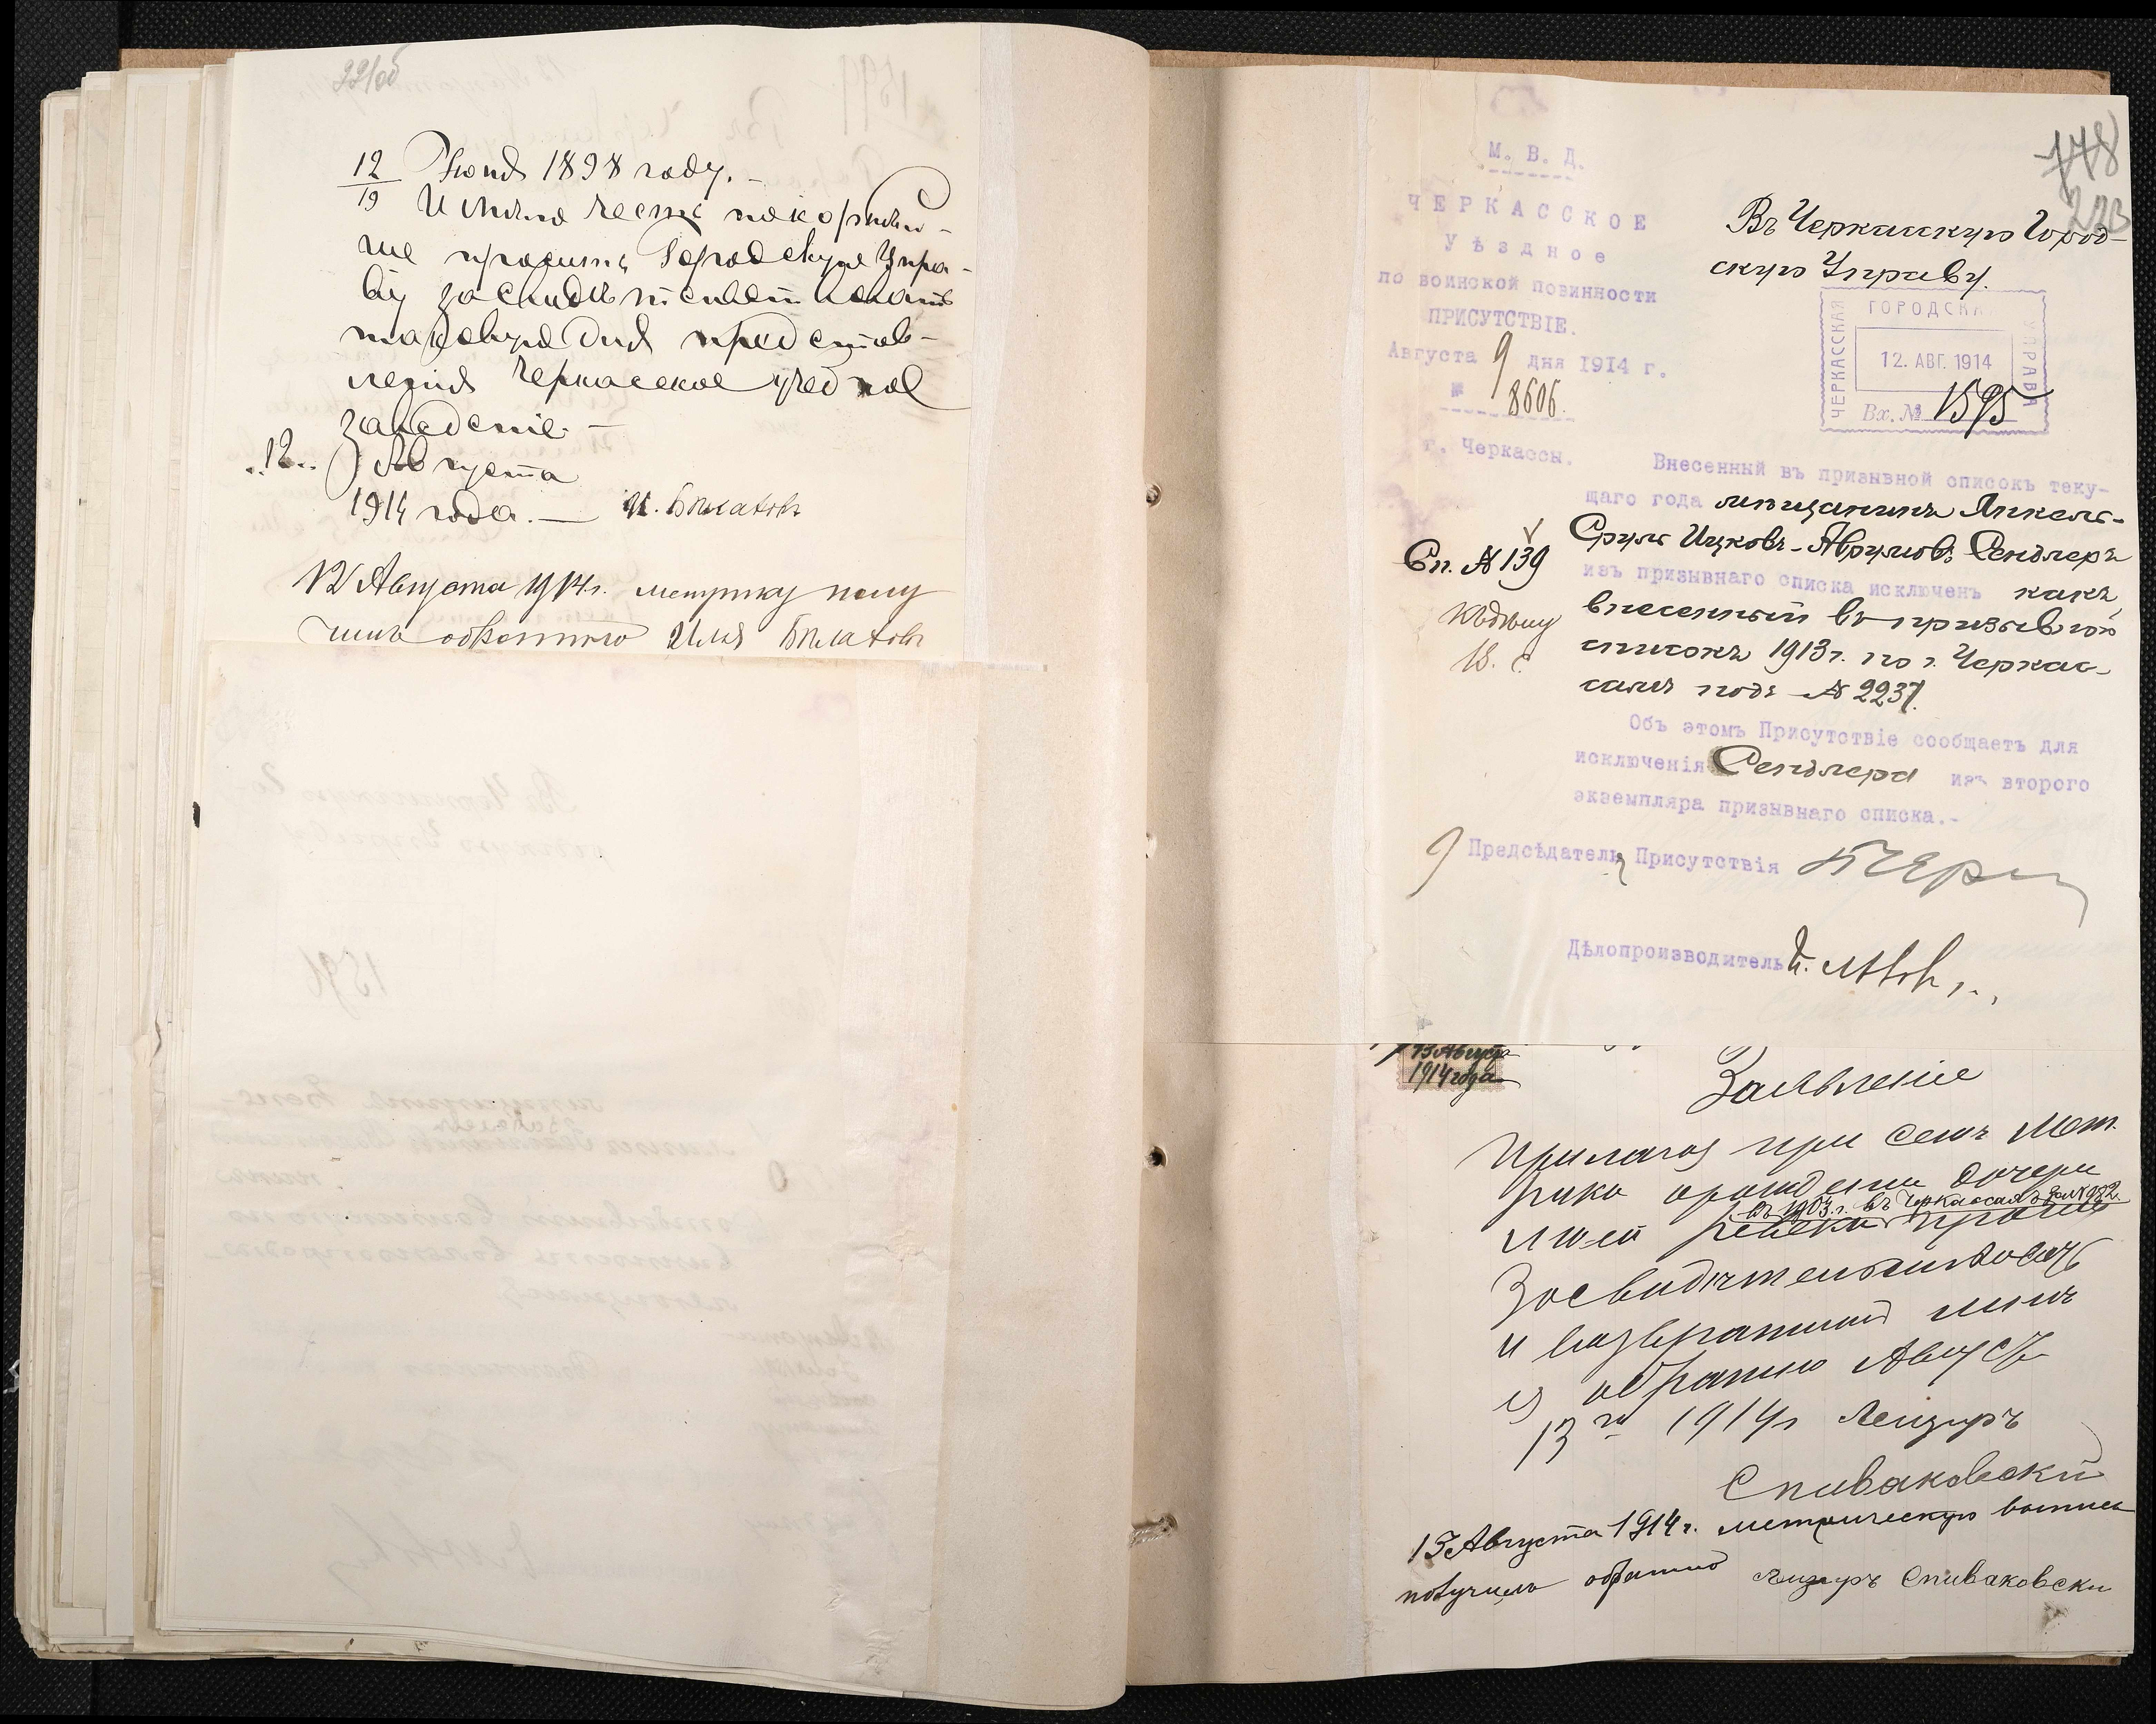 221об
12/19 Іюня 1898 году. —
Имѣю честь покорнѣй-
ше просить Городскую Упра-
ву засвидѣтельствовать
таковую для представ-
ленія Черкасское учебное
заведеніе. —
"12" Августа
1914 года. — И. Булатовъ
12 Августа 1914 г. метрику полу
чилъ обратно Илья Булатовъ
178
223
М. В. Д.
ЧЕРКАССКОЕ
Уѣздное
по воинской повинности
ПРИСУТСТВІЕ.
Августа 9 дня 1914 г.
№ 8606.
г. Черкассы.
Въ Черкасскую Город-
скую Управу.
ЧЕРКАССКАЯ ГОРОДСКА УПРАВА
12. АВГ. 1914
Вх. № 1595
Внесенный въ призывной списокъ теку-
щаго года мѣщанинъ Янкель-
Сруль Ицковъ-Аврумовъ Сендлеръ
Сп. № 139
изъ призывнаго списка исключенъ какъ
внесенный въ призывной
списокъ 1913 г. по г. Черкас-
самъ подъ № 2237.
Объ этомъ Присутствіе сообщаетъ для
исключенія Сендлера изъ второго
экземпляра призывнаго списка.-
Предсѣдатель Присутствія
Дѣлопроизводитель
13 Августа
1914 года
Заявленіе
Прилагая при семъ Мет.
рику о рождении дочери
въ 1903 г. въ Черкассахъ
моей Ревеки прошу
Засвидѣтельствовать
и возвратить мнѣ
обратно Август
13 го 1914 г Лейзеръ
Спиваковский
13 Августа 1914 г. метрическую выпись
получилъ обратно Лейзеръ Спиваковски